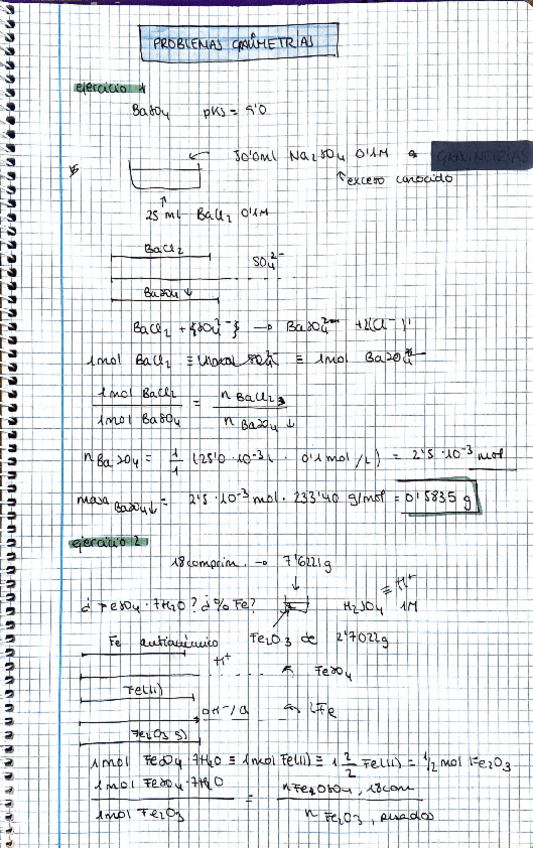 PROBLEMAS GRAVIMETRÍAS
ejercicio 1
BaSO4 pKs = 9'0
30'0ml Na2SO4 0'1M
GRAVIMETRÍAS
exceso conocido
25 ml BaCl2 0'1M
BaCl2
SO4 2-
BaSO4 ↓
BaCl2 + {SO4 2-} → BaSO4 + 2{Cl-}
1mol BaCl2 ≡ 1mol SO4 2- ≡ 1mol BaSO4
1mol BaCl2 / 1mol BaSO4 = n BaCl2 / n BaSO4 ↓
n BaSO4 = 1/1 (25'0·10-3 L · 0'1 mol/L) = 2'5·10-3 mol
masa BaSO4↓ = 2'5·10-3 mol · 233'40 g/mol = 0'5835 g
ejercicio 2
18 comprim. → 7'6221g
≡ H+
¿FeSO4·7H2O? ¿% Fe? H2SO4 1M
Fe2O3 de 2'7022g
Fe
H+
FeSO4
Fe(II)
OH-/Q
Fe
Fe2O3 s)
1mol FeSO4 7H2O ≡ 1mol Fe(II) ≡ 1 2/2 Fe(II) = 1/2 mol Fe2O3
1mol FeSO4·7H2O / 1mol Fe2O3 = / n Fe2O3, pesados